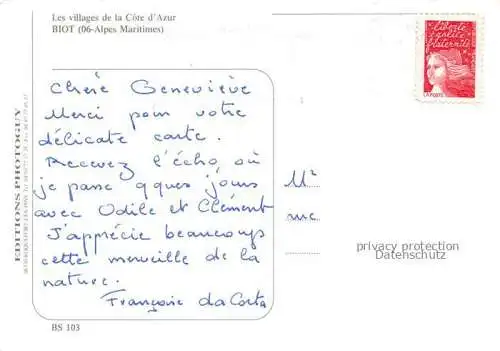 Les villages de la Côte d'Azur
BIOT (06-Alpes Maritimes)
liberté
égalité
fraternité
LA POSTE
Chère Geneviève
Merci pour votre
délicate carte.
Recevez l'écho, où
je passe qques jours
avec Odile et Clément
J'apprécie beaucoup
cette merveille de la
nature.
Françoise da Costa
EDITIONS PHOTOGUY
rue
privacy protection
Datenschutz
BS 103